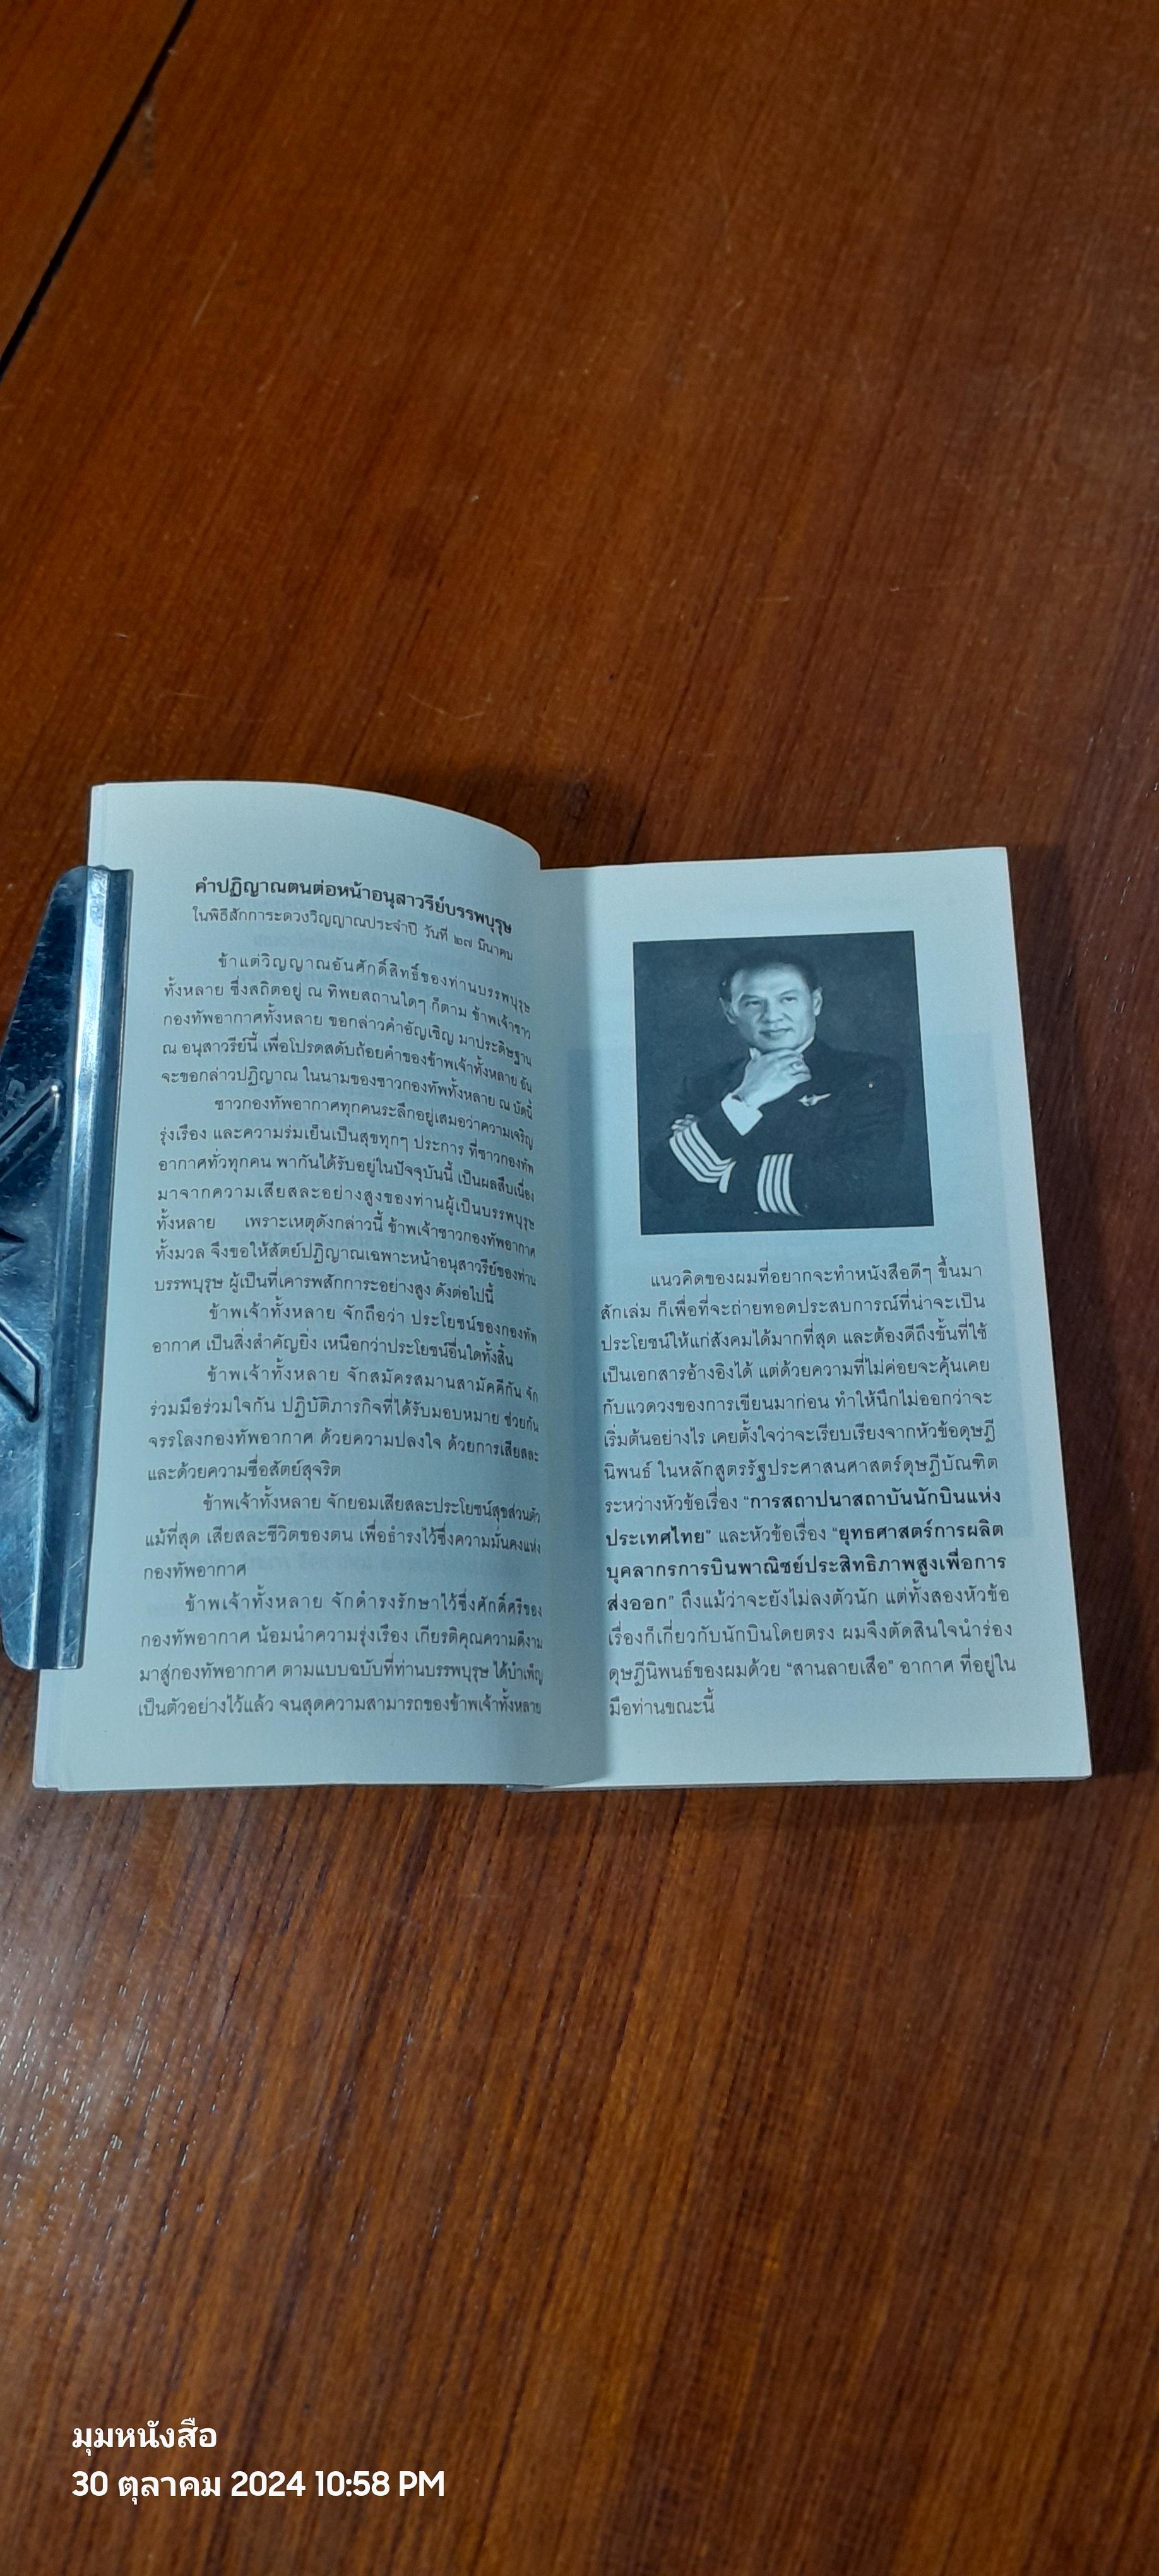 คำปฏิญาณตนต่อหน้าอนุสาวรีย์บรรพบุรุษ
ในพิธีสักการะดวงวิญญาณประจำปี วันที่ ๒๗ มีนาคม
ข้าแต่วิญญาณอันศักดิ์สิทธิ์ของท่านบรรพบุรุษ
ทั้งหลาย ซึ่งสถิตอยู่ ณ ทิพยสถานใดๆ ก็ตาม ข้าพเจ้าชาว
กองทัพอากาศทั้งหลาย ขอกล่าวคำอัญเชิญ มาประดิษฐาน
ณ อนุสาวรีย์นี้ เพื่อโปรดสดับถ้อยคำของข้าพเจ้าทั้งหลาย อัน
จะขอกล่าวปฏิญาณ ในนามของชาวกองทัพทั้งหลาย ณ บัดนี้
ชาวกองทัพอากาศทุกคนระลึกอยู่เสมอว่าความเจริญ
รุ่งเรือง และความร่มเย็นเป็นสุขทุกๆ ประการ ที่ชาวกองทัพ
อากาศทั่วทุกคน พากันได้รับอยู่ในปัจจุบันนี้ เป็นผลสืบเนื่อง
มาจากความเสียสละอย่างสูงของท่านผู้เป็นบรรพบุรุษ
ทั้งหลาย เพราะเหตุดังกล่าวนี้ ข้าพเจ้าชาวกองทัพอากาศ
ทั้งมวล จึงขอให้สัตย์ปฏิญาณเฉพาะหน้าอนุสาวรีย์ของท่าน
บรรพบุรุษ ผู้เป็นที่เคารพสักการะอย่างสูง ดังต่อไปนี้
ข้าพเจ้าทั้งหลาย จักถือว่า ประโยชน์ของกองทัพ
อากาศ เป็นสิ่งสำคัญยิ่ง เหนือกว่าประโยชน์อื่นใดทั้งสิ้น
ข้าพเจ้าทั้งหลาย จักสมัครสมานสามัคคีกัน จัก
ร่วมมือร่วมใจกัน ปฏิบัติภารกิจที่ได้รับมอบหมาย ช่วยกัน
จรรโลงกองทัพอากาศ ด้วยความปลงใจ ด้วยการเสียสละ
และด้วยความซื่อสัตย์สุจริต
ข้าพเจ้าทั้งหลาย จักยอมเสียสละประโยชน์สุขส่วนตัว
แม้ที่สุด เสียสละชีวิตของตน เพื่อธำรงไว้ซึ่งความมั่นคงแห่ง
กองทัพอากาศ
ข้าพเจ้าทั้งหลาย จักดำรงรักษาไว้ซึ่งศักดิ์ศรีของ
กองทัพอากาศ น้อมนำความรุ่งเรือง เกียรติคุณความดีงาม
มาสู่กองทัพอากาศ ตามแบบฉบับที่ท่านบรรพบุรุษ ได้บำเพ็ญ
เป็นตัวอย่างไว้แล้ว จนสุดความสามารถของข้าพเจ้าทั้งหลาย
แนวคิดของผมที่อยากจะทำหนังสือดีๆ ขึ้นมา
สักเล่ม ก็เพื่อที่จะถ่ายทอดประสบการณ์ที่น่าจะเป็น
ประโยชน์ให้แก่สังคมได้มากที่สุด และต้องดีถึงขั้นที่ใช้
เป็นเอกสารอ้างอิงได้ แต่ด้วยความที่ไม่ค่อยจะคุ้นเคย
กับแวดวงของการเขียนมาก่อน ทำให้นึกไม่ออกว่าจะ
เริ่มต้นอย่างไร เคยตั้งใจว่าจะเรียบเรียงจากหัวข้อดุษฎี
นิพนธ์ ในหลักสูตรรัฐประศาสนศาสตร์ดุษฎีบัณฑิต
ระหว่างหัวข้อเรื่อง “การสถาปนาสถาบันนักบินแห่ง
ประเทศไทย” และหัวข้อเรื่อง “ยุทธศาสตร์การผลิต
บุคลากรการบินพาณิชย์ประสิทธิภาพสูงเพื่อการ
ส่งออก” ถึงแม้ว่าจะยังไม่ลงตัวนัก แต่ทั้งสองหัวข้อ
เรื่องก็เกี่ยวกับนักบินโดยตรง ผมจึงตัดสินใจนำร่อง
ดุษฎีนิพนธ์ของผมด้วย “สานลายเสือ” อากาศ ที่อยู่ใน
มือท่านขณะนี้
มุมหนังสือ
30 ตุลาคม 2024 10:58 PM